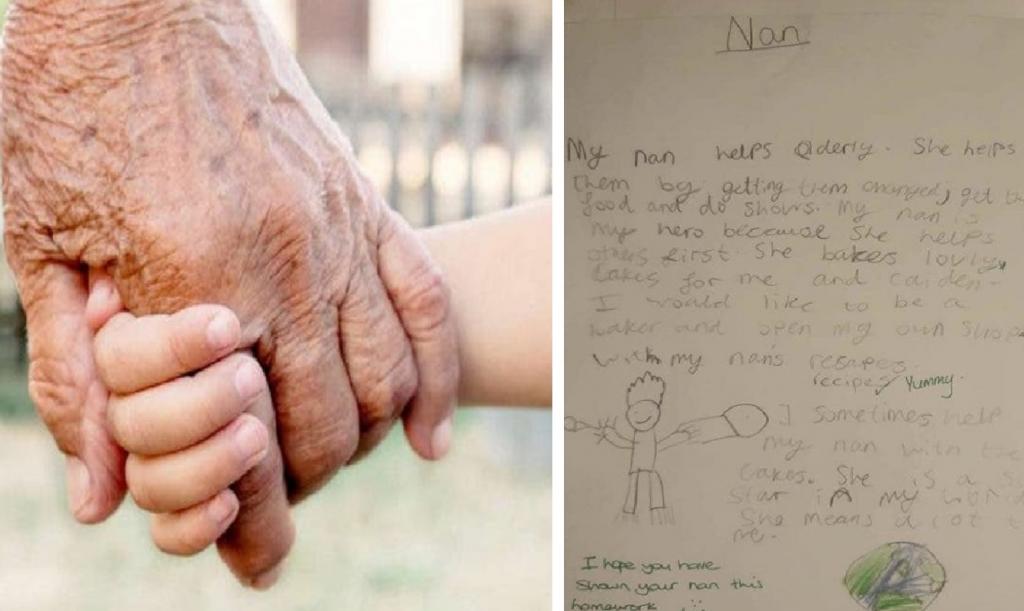 Nan
My nan helps elderly. She helps
them by getting them changed, get th
food and do shours. My nan is
my hero because she helps
others first. She bakes lovly
cakes for me and caiden.
I would like to be a
baker and open my own shop
with my nan's resapes
recipes Yummy.
I sometimes help
my nan with the
cakes. She is a su
star in my world
She means a lot t
me.
I hope you have
shown your nan this
homework